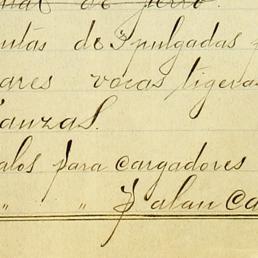 de fierro.
utas de 3 pulgadas
ares vocas ligera
anzas.
alos para cargadores
" " palanca